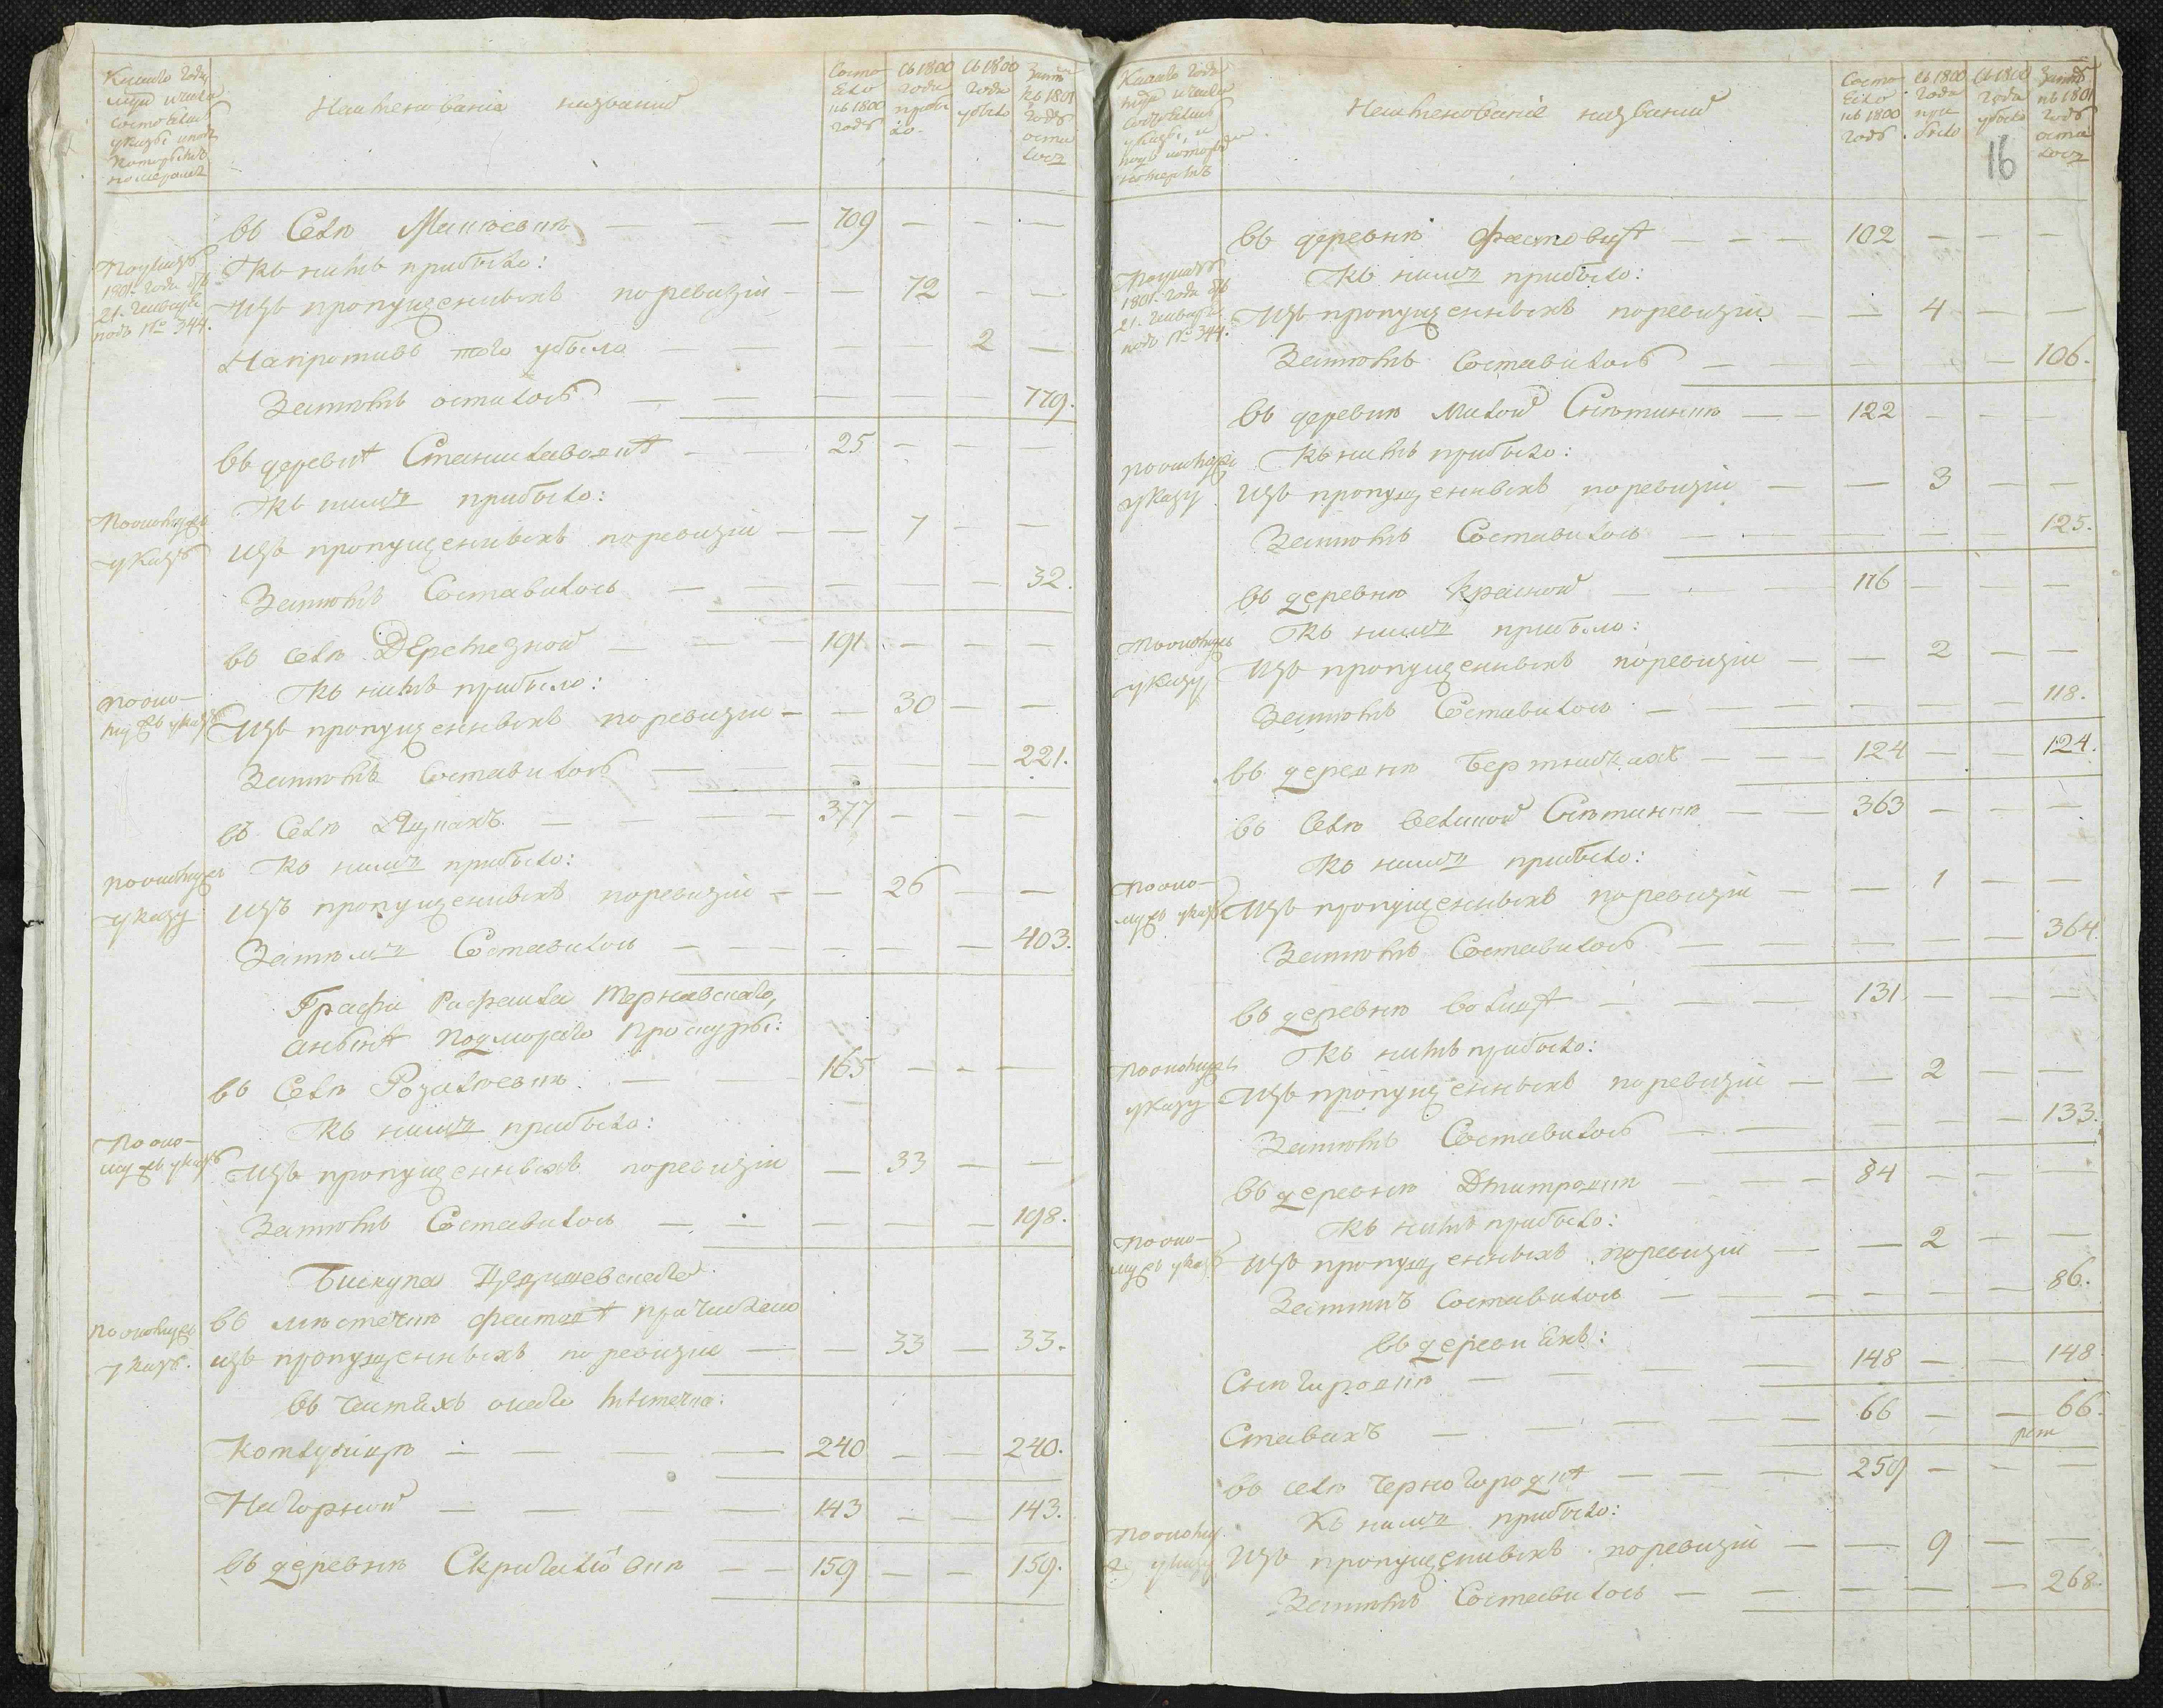 Наименованіе названий
Состо
яло
къ 1800
году
Съ 1800
года
прибы
ло.
Съ 1800
года
убыло
Затѣмъ
къ 1801
году
оста
лось
въ Селѣ — — — 709 — — —
По указу
1801. года
21. Генваря
подъ № 344.
Къ нимъ прибыло:
Изъ пропущенныхъ по ревизіи — — 72 — —
Напротивъ того убыло — — — — 2 —
Затѣмъ осталось — — — — — 779.
въ деревнѣ Станиславовкѣ — — 25 — — —
По оному же
указу
Къ нимъ прибыло:
Изъ пропущенныхъ по ревизіи — — 7 — —
Затѣмъ Составилось — — — — — 32.
въ селѣ — — — 191 — — —
По оно-
му же указу
Къ нимъ прибыло:
Изъ пропущенныхъ по ревизіи — — 30 — —
Затѣмъ Составилось — — — — 221.
въ Селѣ — — — — 377 — — —
По оному же
указу
Къ нимъ прибыло:
Изъ пропущенныхъ по ревизіи — — 26 — —
Затѣмъ Составилось — — — — — — 403.
Графа Рафаила Тернавскаго,
въ Селѣ Розалѣевкѣ — — 165 — — —
По оно-
му же указу
Къ нимъ прибыло:
Изъ пропущенныхъ по ревизіи — 33 — —
Затѣмъ Составилось — — — — — 198.
Бискупа Цецишевскаго
По оному же
указу.
въ мѣстечкѣ Фастовѣ причислено
изъ пропущенныхъ по ревизіи — — 33 — 33.
въ частяхъ онаго мѣстечка:
— — — — 240 — — 240.
Нагорной — — — — 143 — — 143.
въ деревнѣ Скригалёвкѣ — — 159 — — 159.
Наименованіе названий
Состо
яло
къ 1800
году
Съ 1800
года
при
было
Съ 1800
года
убыло
Затѣмъ
къ 1801
году
оста
лось
16
въ деревнѣ Фастовкѣ — — — 102 — — —
По указу
1801. года
21. Генваря
подъ № 344.
Къ нимъ прибыло:
Изъ пропущенныхъ по ревизіи — — 4 — —
Затѣмъ Составилось — — — — 106.
въ деревнѣ Малой Снѣтинкѣ — — 122 — — —
По оному же
указу
Къ нимъ прибыло:
Изъ пропущенныхъ по ревизіи — — 3 — —
Затѣмъ Составилось — — — — — 125.
въ деревнѣ Красной — — — 116 — — —
По оному же
указу
Къ нимъ прибыло:
Изъ пропущенныхъ по ревизіи — — 2 — —
Затѣмъ Составилось — — — — — — 118.
въ деревнѣ — — — 124 — — 124.
въ Селѣ Великой Снѣтинкѣ — — 363 — — —
По оно-
му же указу
Къ нимъ прибыло:
Изъ пропущенныхъ по ревизіи — — 1 — —
Затѣмъ Составилось — — — — — 364.
въ деревнѣ Волицѣ — — — 131 — — —
По оному же
указу
Къ нимъ прибыло:
Изъ пропущенныхъ по ревизіи — — 2 — —
Затѣмъ Составилось — — — — — 133.
въ деревнѣ Дмитровкѣ — — — 84 — — —
По оно-
му же указу
Къ нимъ прибыло:
Изъ пропущенныхъ по ревизіи — — 2 — —
Затѣмъ Составилось — — — — — — 86.
въ деревняхъ:
Снѣгировкѣ — — — — 148 — — 148
Ставахъ — — — — — 66 — — 66.
въ селѣ Черногородкѣ — — — 259 — — —
По оному
же указу
Къ нимъ прибыло:
Изъ пропущенныхъ по ревизіи — — 9 — —
Затѣмъ Составилось — — — — — 268.